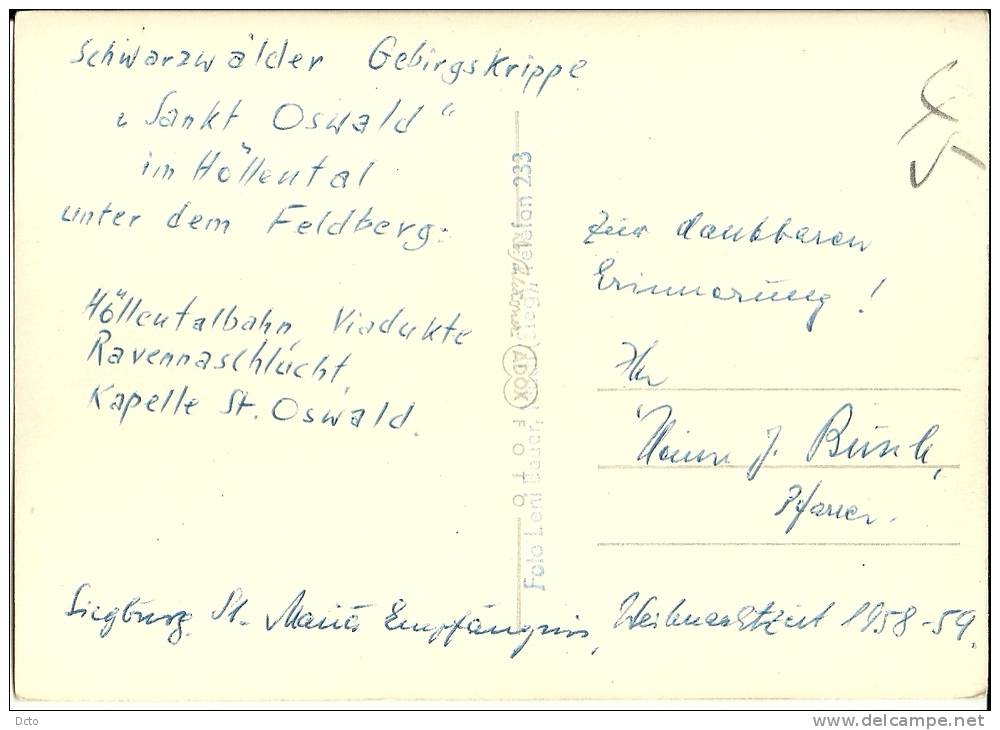 Schwarzwälder Gebirgskrippe
„Sankt Oswald“
im Höllental
unter dem Feldberg:
Höllentalbahn, Viadukte
Ravennaschlucht,
Kapelle St. Oswald.
Zur dankbaren
Erinnerung!
Ihr
J. Büsch,
Pfarrer.
Siegburg, St. Mariä Empfängnis, Weihnachtszeit 1958-59.
Foto Leni Bauer, Telefon 233
ADOX FOTO
Dcto
www.delcampe.net